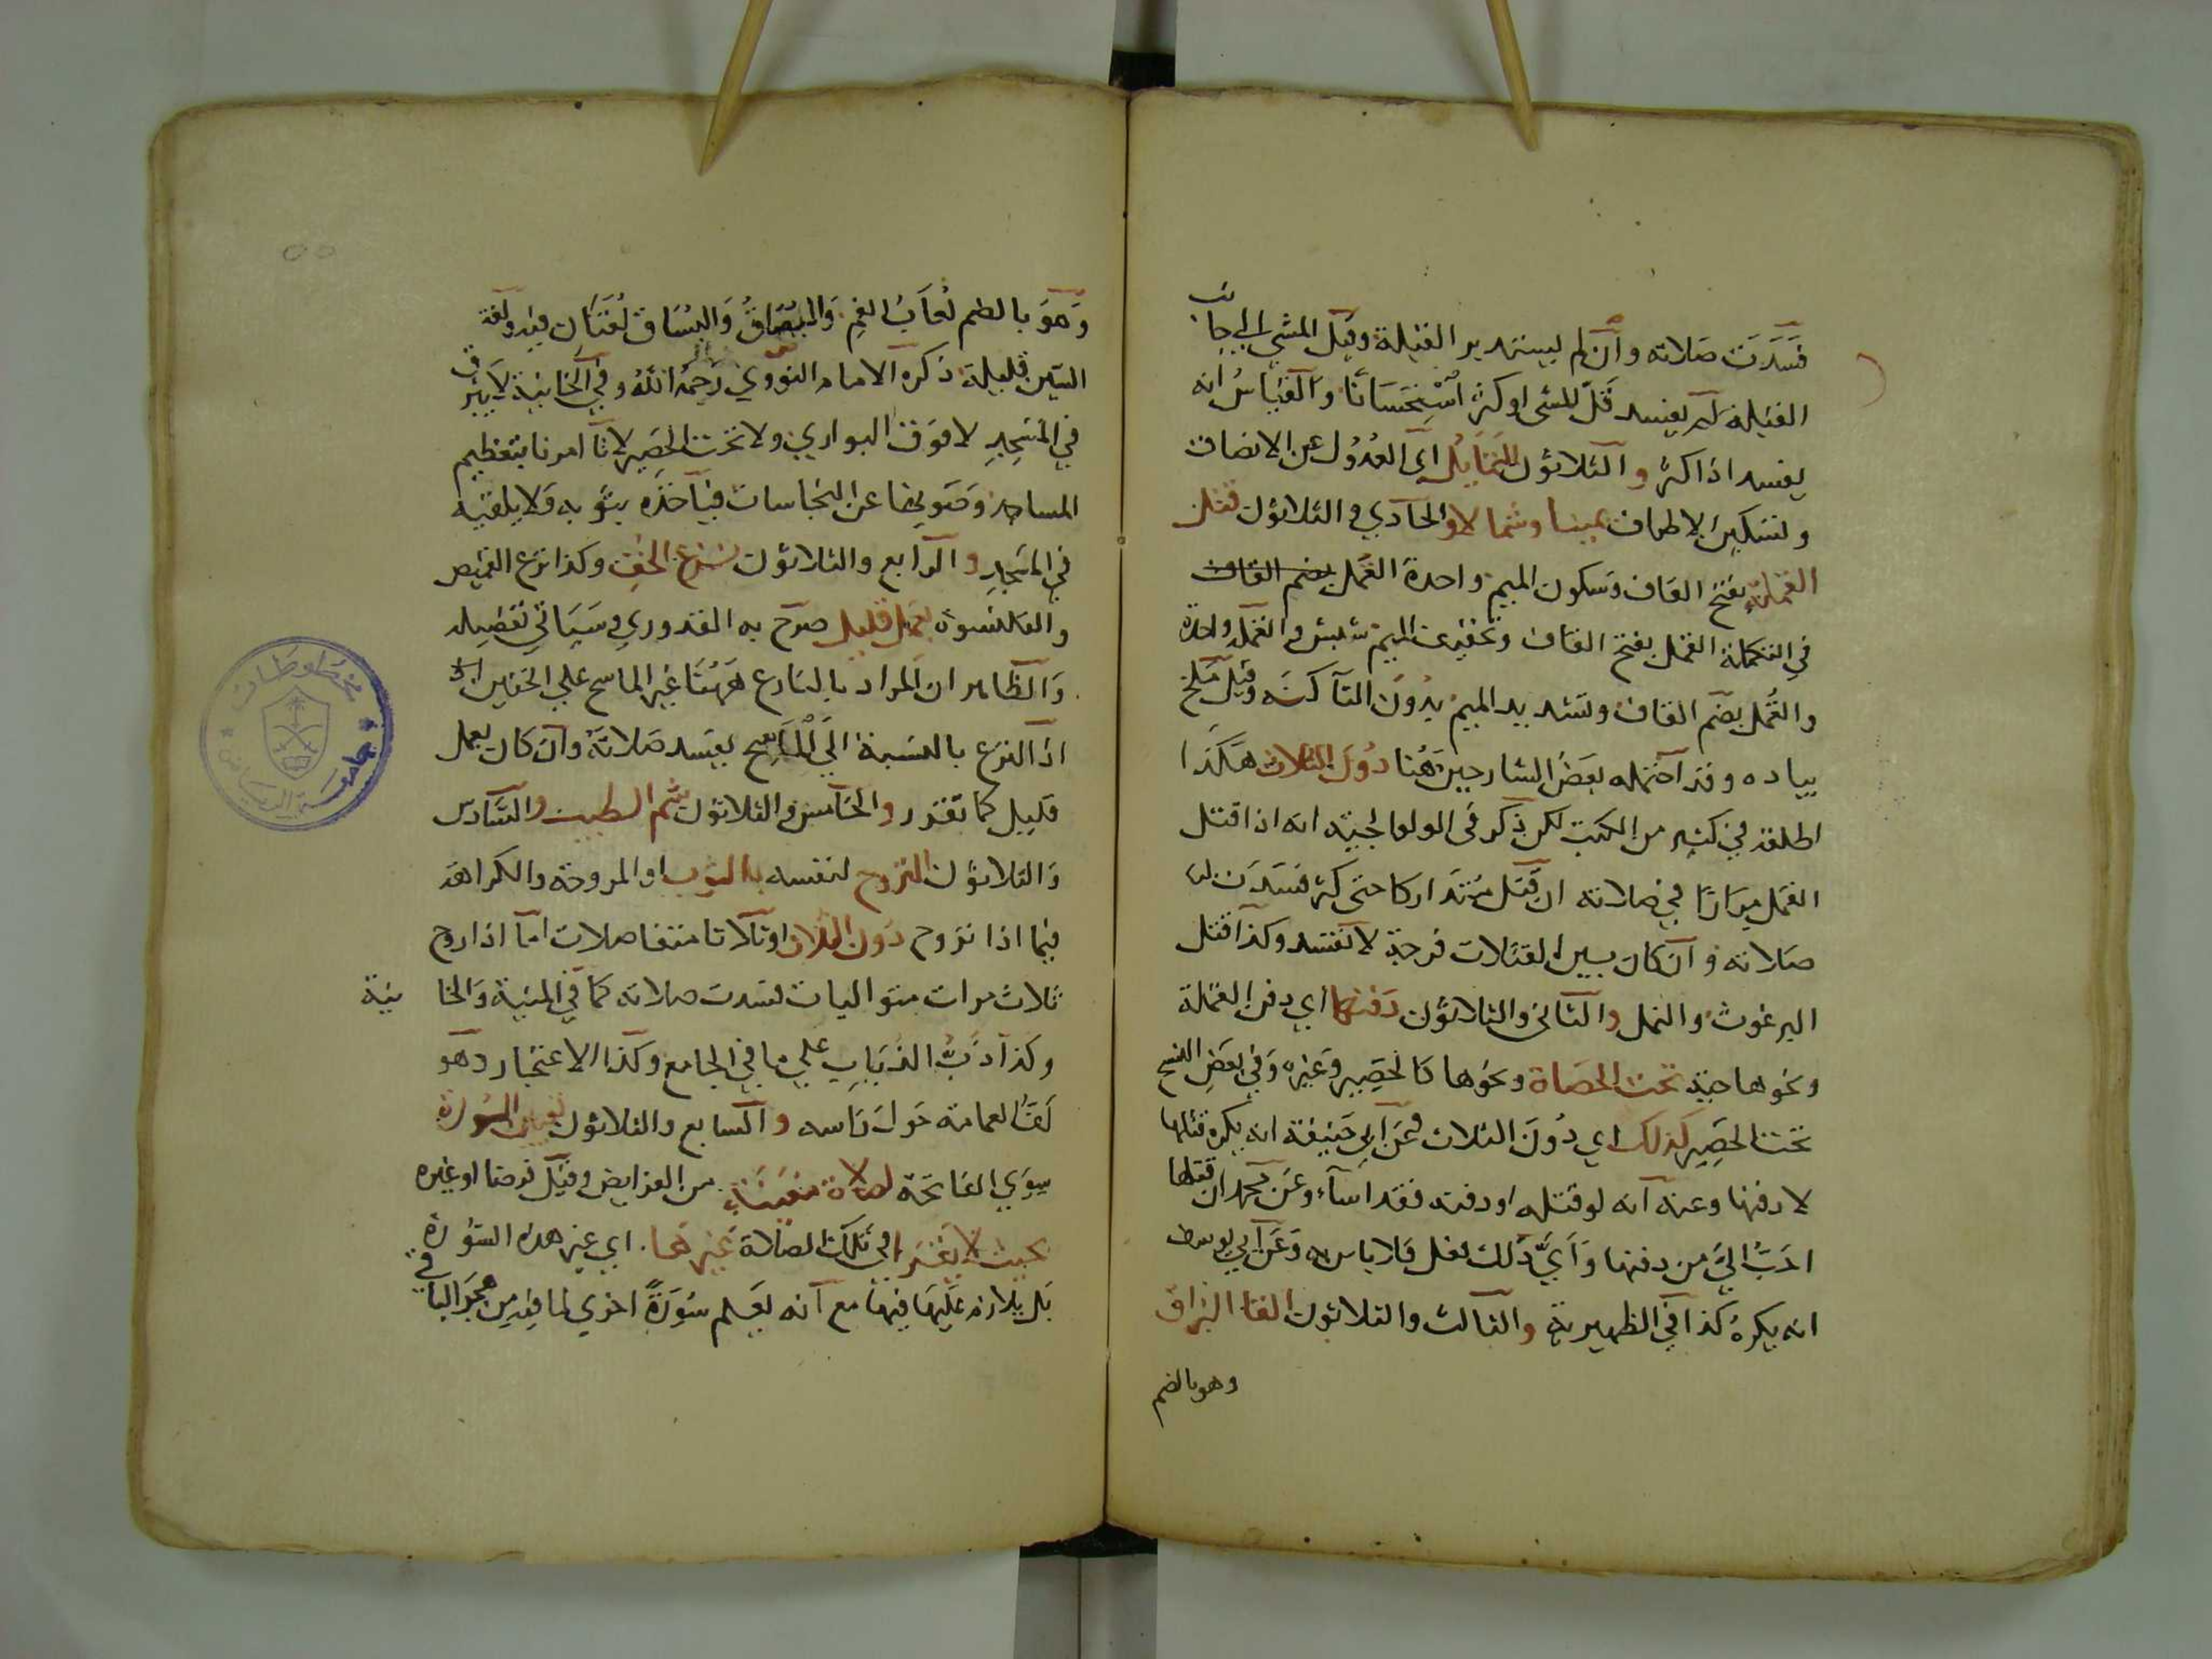 فسدت صلاته وان لم يستدبر القبلة وقيل المشي الي جانب
القبلة لم يفسد قل المشي او كثر استحسانا والقياس انه
يفسد اذا كثر والثلاثون التمايل اي العدول عن الانصاف
وتسكين الاطراف يمينا وشمالا والحادي والثلاثون قتل
القملة بفتح القاف وسكون الميم واحدة القمل بضم القاف
في التكملة القمل بفتح القاف وتخفيف الميم شبش والقملة واحدة
والقمل بضم القاف وتشديد الميم بدون التا كنه وقيل ملخ
بياده وقد احتمله بعض الشارحين هنا دون الثلاث هكذا
اطلقه في كثير من الكتب لكن ذكر في الولوالجية انه اذا قتل
القمل مرارا في صلاته ان قتل متداركا حتى كثر فسدت
صلاته وان كان بين القتلات فرجة لا تفسد وكذا قتل
البرغوث والنمل والثاني والثلاثون دفنها اي دفن القملة
ونحوها حية تحت الحصاة ونحوها كالحصير وغيره وفي بعض النسخ
تحت الحصير كذلك اي دون الثلاث وعن ابي حنيفة انه يكره قتلها
لا دفنها وعنه انه لو قتله او دفنه فقد اساء وعن محمد ان قتلها
احب الي من دفنها واي ذلك فعل فلا باس به وعن ابي يوسف
انه يكره كذا في الظهيرية والثالث والثلاثون القا البزاق
وهو بالضم
وهو بالضم لعاب الفم والبصاق والبساق لغتان فيه ولغة
السين قليلة ذكره الامام النووي رحمه الله وفي الخانية لا يبزق
في المسجد لا فوق البواري ولا تحت الحصير لانا امرنا بتعظيم
المساجد وصونها عن النجاسات فياخذه بثوبه ولا يلقيه
في المسجد والرابع والثلاثون نزع الخف وكذا نزع القميص
والقلنسوة بعمل قليل صرح به القدوري وسياتي تفصيله
والظاهر ان المراد بالنازع ههنا غير الماسح علي الخفين
اذ النزع بالنسبة الي الماسح يفسد صلاته وان كان بعمل
قليل كما تقرر والخامس والثلاثون شم الطيب والسادس
والثلاثون التروح لنفسه بالثوب او المروحة والكراهة
فيما اذا تروح دون الثلاث او ثلاثا متفاصلات اما اذا روح
ثلاث مرات متواليات فسدت صلاته كما في المنية والخانية
وكذا ذب الذباب علي ما في الجامع وكذا الاعتجار وهو
لف العمامة حول راسه والسابع والثلاثون تعيين السورة
سوي الفاتحة لصلاة معينة من الفرايض وقيل فرضا او غيره
بحيث لا يقرا في تلك الصلاة غيرها اي غير هذه السورة
بل يلازم عليها فيها مع انه يعلم سورة اخري لما فيه من هجر الباقي
مخطوطات
جامعة الرياض